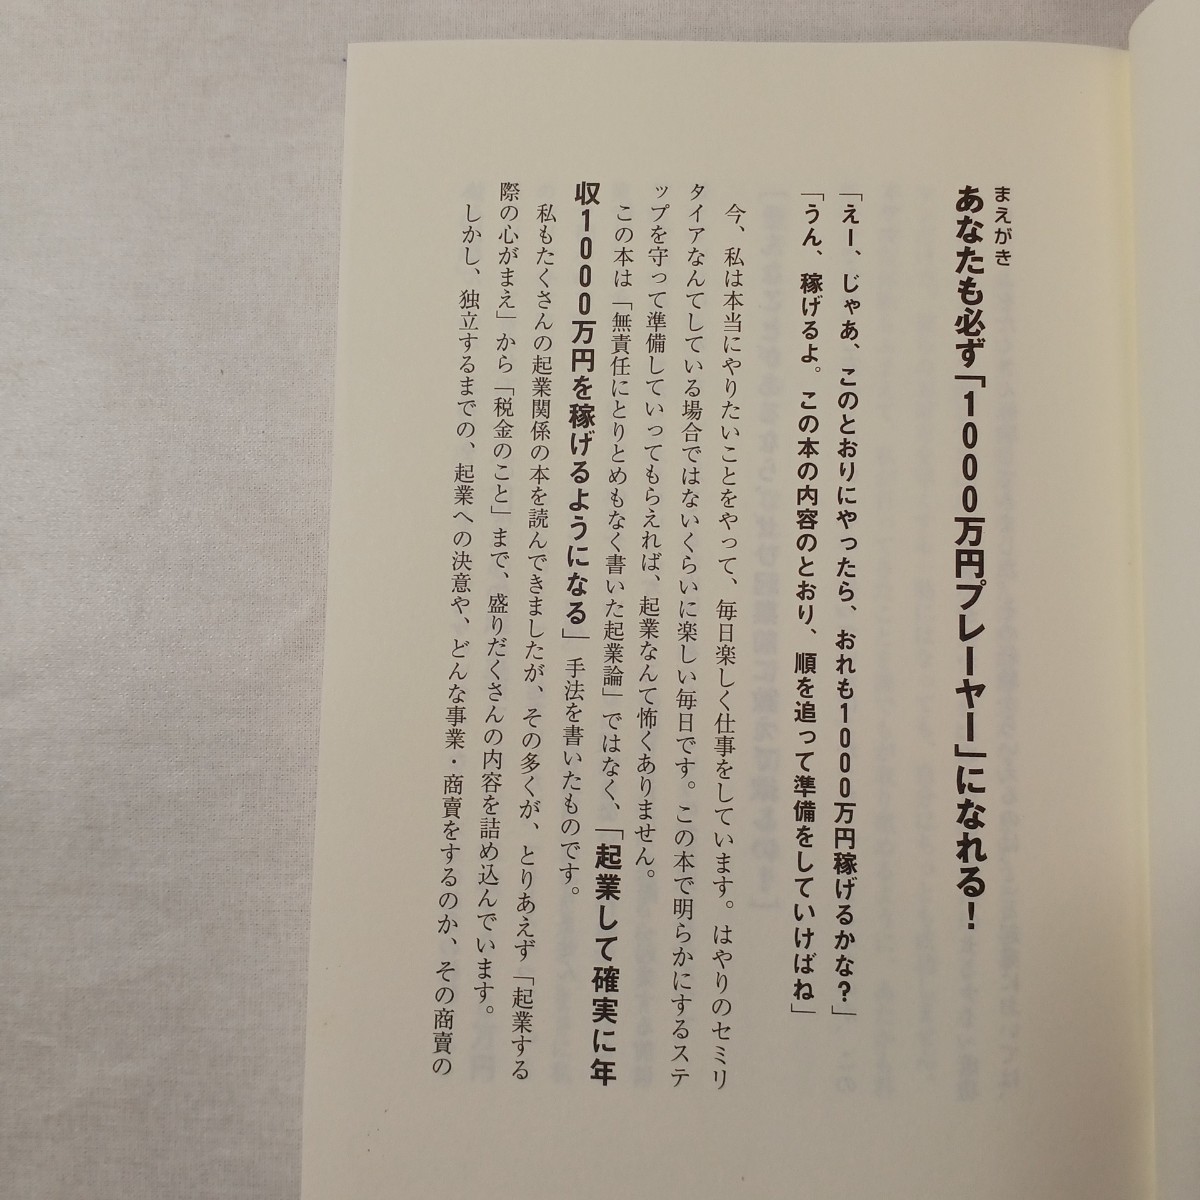 まえがき
あなたも必ず「1000万円プレーヤー」になれる！
「えー、じゃあ、このとおりにやったら、おれも1000万円稼げるかな？」
「うん、稼げるよ。この本の内容のとおり、順を追って準備をしていけばね」
今、私は本当にやりたいことをやって、毎日楽しく仕事をしています。はやりのセミリ
タイアなんてしている場合ではないくらいに楽しい毎日です。この本で明らかにするステ
ップを守って準備していってもらえれば、起業なんて怖くありません。
この本は「無責任にとりとめもなく書いた起業論」ではなく、「起業して確実に年
収1000万円を稼げるようになる」手法を書いたものです。
私もたくさんの起業関係の本を読んできましたが、その多くが、とりあえず「起業する
際の心がまえ」から「税金のこと」まで、盛りだくさんの内容を詰め込んでいます。
しかし、独立するまでの、起業への決意や、どんな事業・商賣をするのか、その商賣の